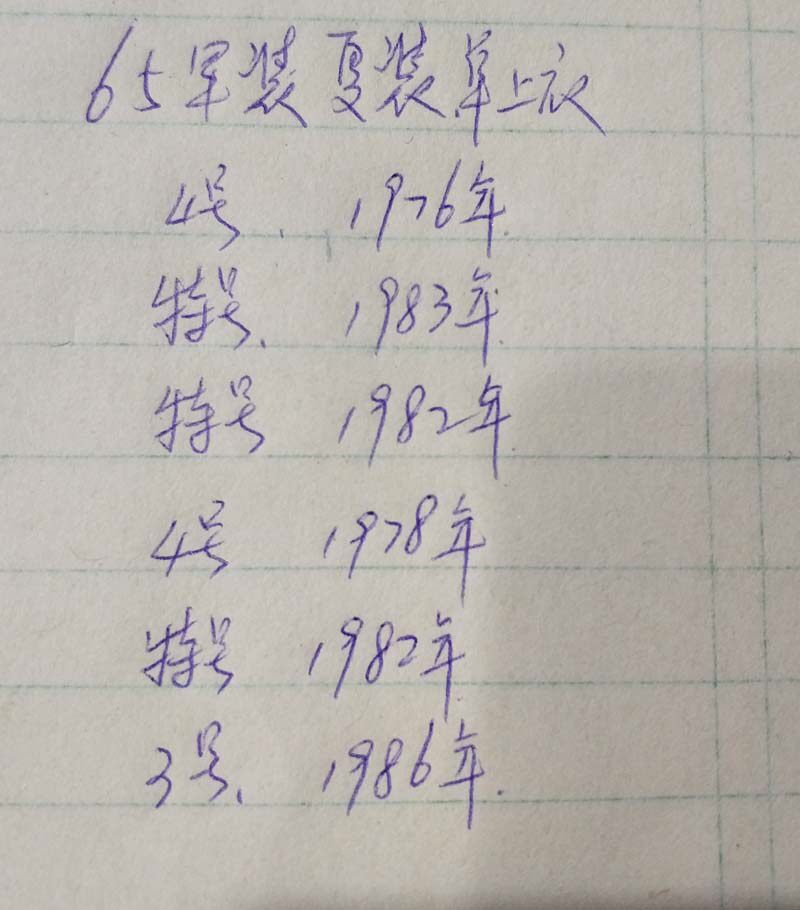 65军装夏装单上衣
4号、1976年
特号、1983年
特号 1982年
4号 1978年
特号 1982年
3号、1986年.